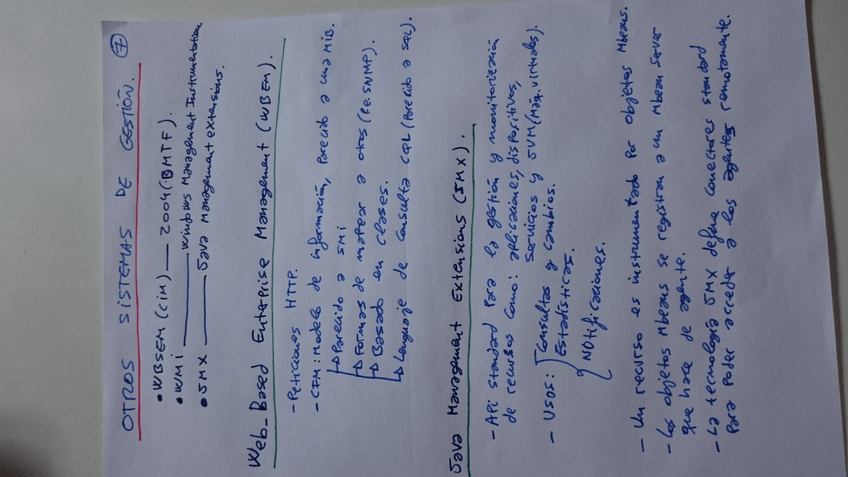 OTROS SISTEMAS DE GESTIÓN. 7
• WBSEM (CIM) — 2004 (BMTF).
• WMI — Windows Management Instrumentation
• JMX — Java Management extensions.
Web_Based Enterprise Management (WBEM)
- Peticiones HTTP.
- CIM: modelo de información, parecido a una MIB.
→ Parecido a SMI
→ Formas de mapear a otros (P.e. SNMP).
→ Basado en clases.
→ Lenguaje de consulta CQL (Parecido a SQL).
Java Management Extensions (JMX).
- Api standard para la gestión y monitorización
de recursos como: aplicaciones, dispositivos,
servicios y JVM (Máq. virtuales).
- Usos: Consultas y cambios.
Estadísticas.
Notificaciones.
- Un recurso es instrumentado por objetos Mbeans.
- Los objetos Mbeans se registran a un Mbean Server
que hace de agente.
- La tecnología JMX define conectores standard
para poder acceder a los agentes remotamente.